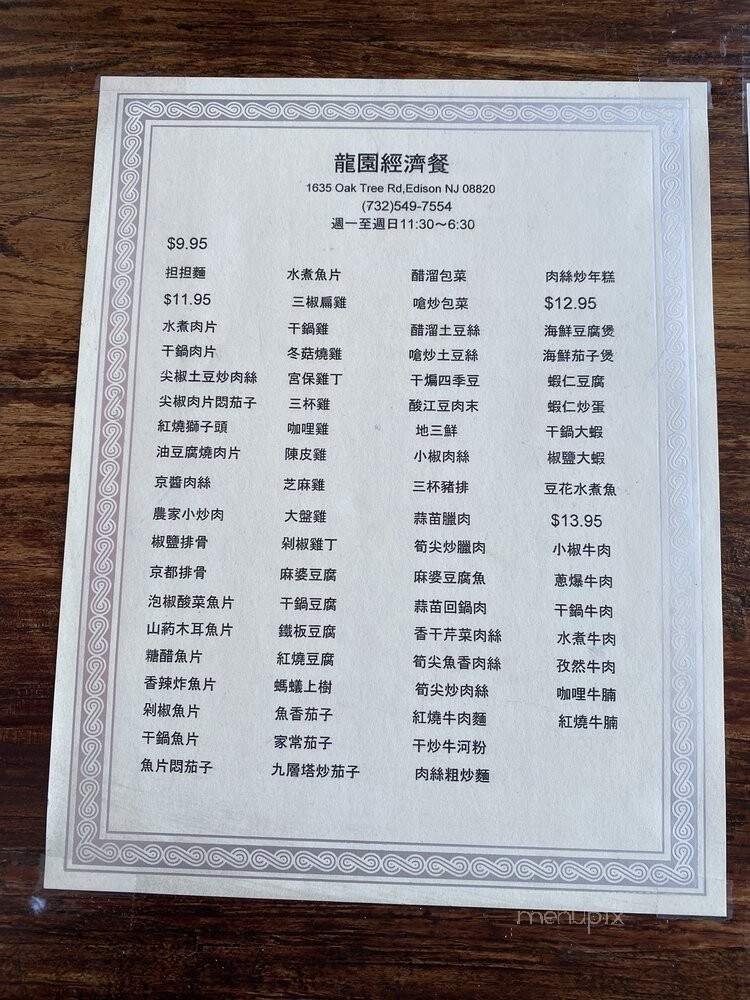 龍園經濟餐
1635 Oak Tree Rd,Edison NJ 08820
(732)549-7554
週一至週日11:30～6:30
$9.95
担担麵
$11.95
水煮肉片
干鍋肉片
尖椒土豆炒肉絲
尖椒肉片悶茄子
紅燒獅子頭
油豆腐燒肉片
京醬肉絲
農家小炒肉
椒鹽排骨
京都排骨
泡椒酸菜魚片
山药木耳魚片
糖醋魚片
香辣炸魚片
剁椒魚片
干鍋魚片
魚片悶茄子
水煮魚片
三椒扁雞
干鍋雞
冬菇燒雞
宮保雞丁
三杯雞
咖哩雞
陳皮雞
芝麻雞
大盤雞
剁椒雞丁
麻婆豆腐
干鍋豆腐
鐵板豆腐
紅燒豆腐
螞蟻上樹
魚香茄子
家常茄子
九層塔炒茄子
醋溜包菜
嗆炒包菜
醋溜土豆絲
嗆炒土豆絲
干煸四季豆
酸江豆肉末
地三鮮
小椒肉絲
三杯豬排
蒜苗臘肉
筍尖炒臘肉
麻婆豆腐魚
蒜苗回鍋肉
香干芹菜肉絲
筍尖魚香肉絲
筍尖炒肉絲
紅燒牛肉麵
干炒牛河粉
肉絲粗炒麵
肉絲炒年糕
$12.95
海鮮豆腐煲
海鮮茄子煲
蝦仁豆腐
蝦仁炒蛋
干鍋大蝦
椒鹽大蝦
豆花水煮魚
$13.95
小椒牛肉
蔥爆牛肉
干鍋牛肉
水煮牛肉
孜然牛肉
咖哩牛腩
紅燒牛腩
menupix